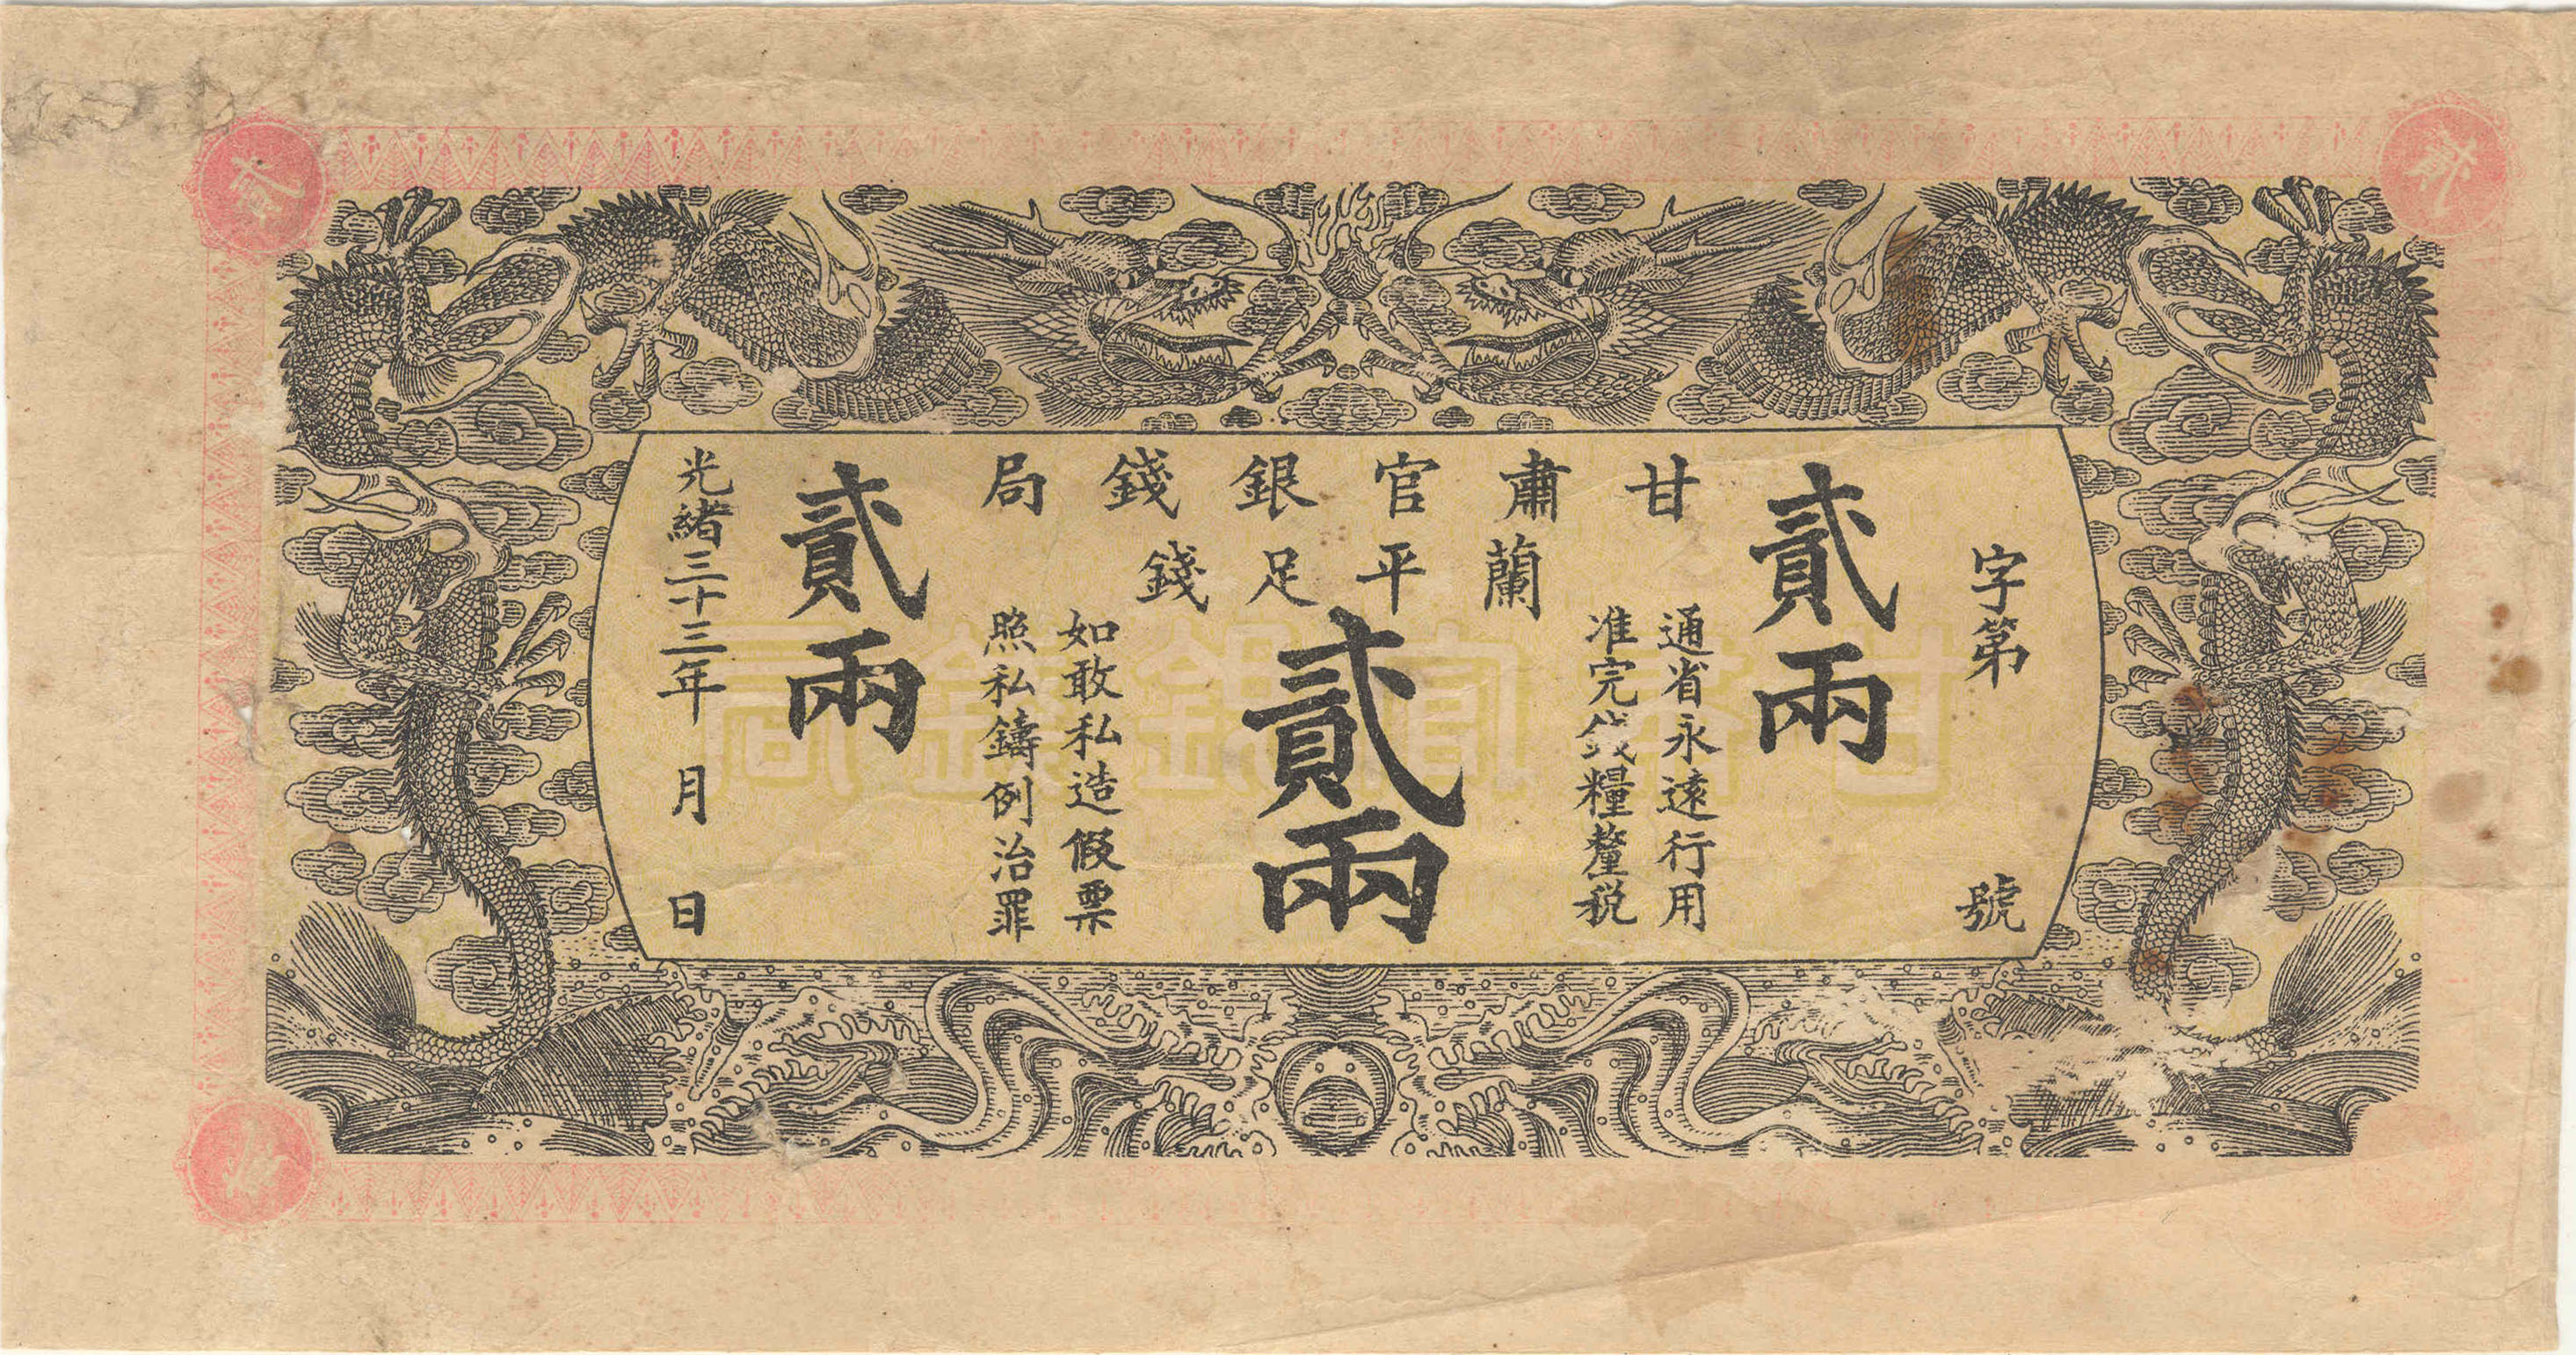 甘肅官銀錢局
蘭平足銀錢
字第 號
貳兩
通省永遠行用
准完錢糧釐税
貳兩
如敢私造假票
照私鑄例治罪
貳兩
光緒三十三年 月 日
甘肅官銀錢局
貳
貳
貳